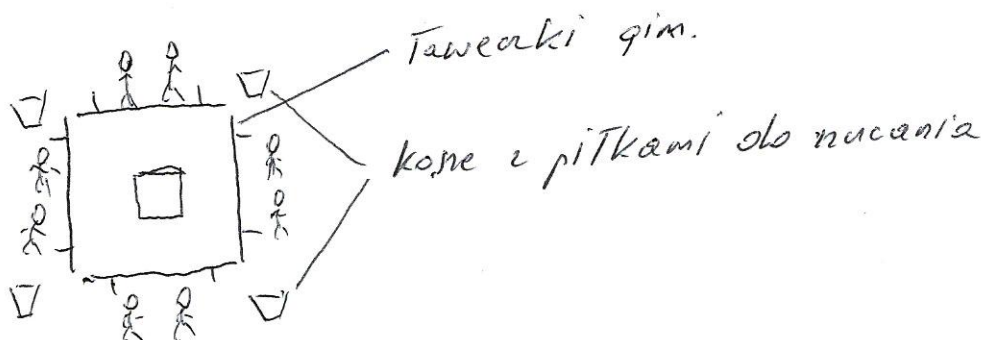 Ławeczki gim.
kosze z piłkami do rzucania